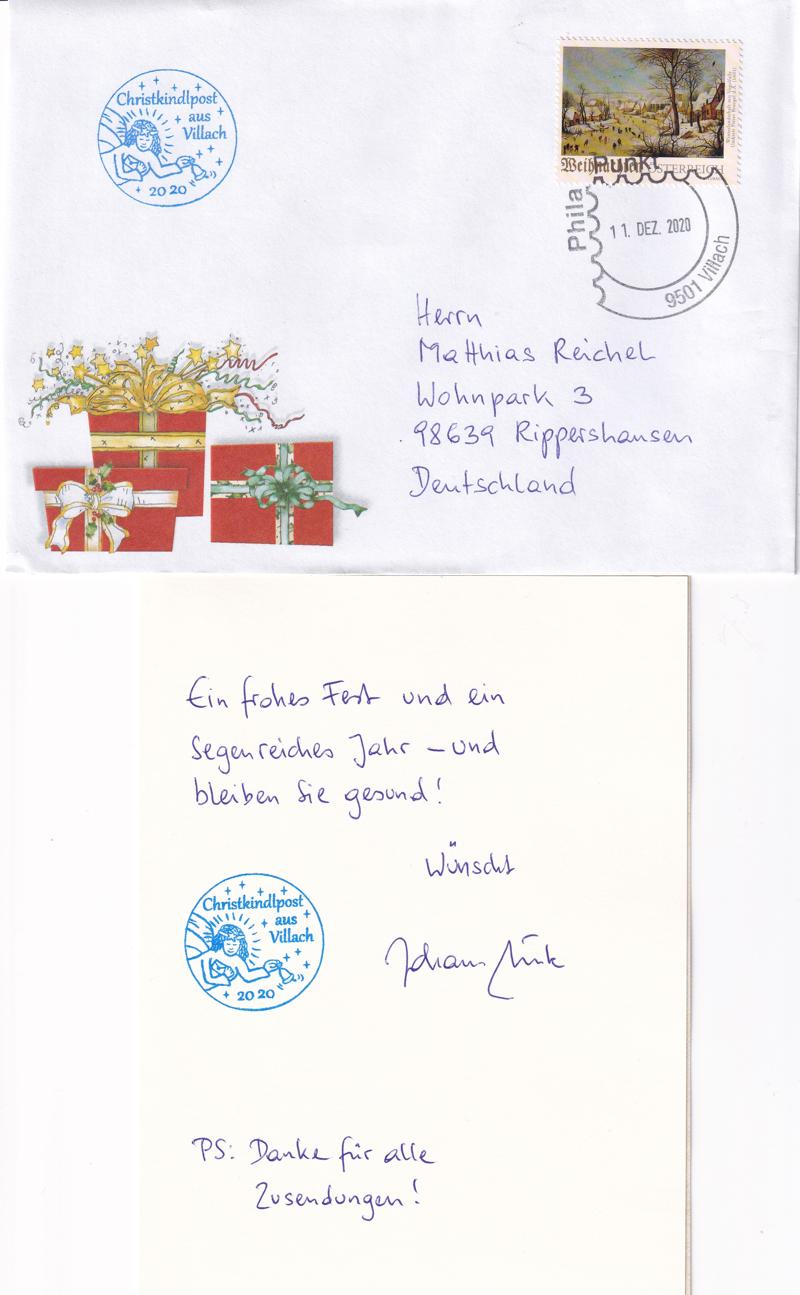 Christkindlpost
aus
Villach
2020
Weihnachten ÖSTERREICH
Phila Punkt
11. DEZ. 2020
9501 Villach
Herrn
Matthias Reichel
Wohnpark 3
98639 Rippershausen
Deutschland
Ein frohes Fest und ein
segenreiches Jahr – und
bleiben Sie gesund!
Wünscht
Christkindlpost
aus
Villach
2020
Johann
PS: Danke für alle
Zusendungen!